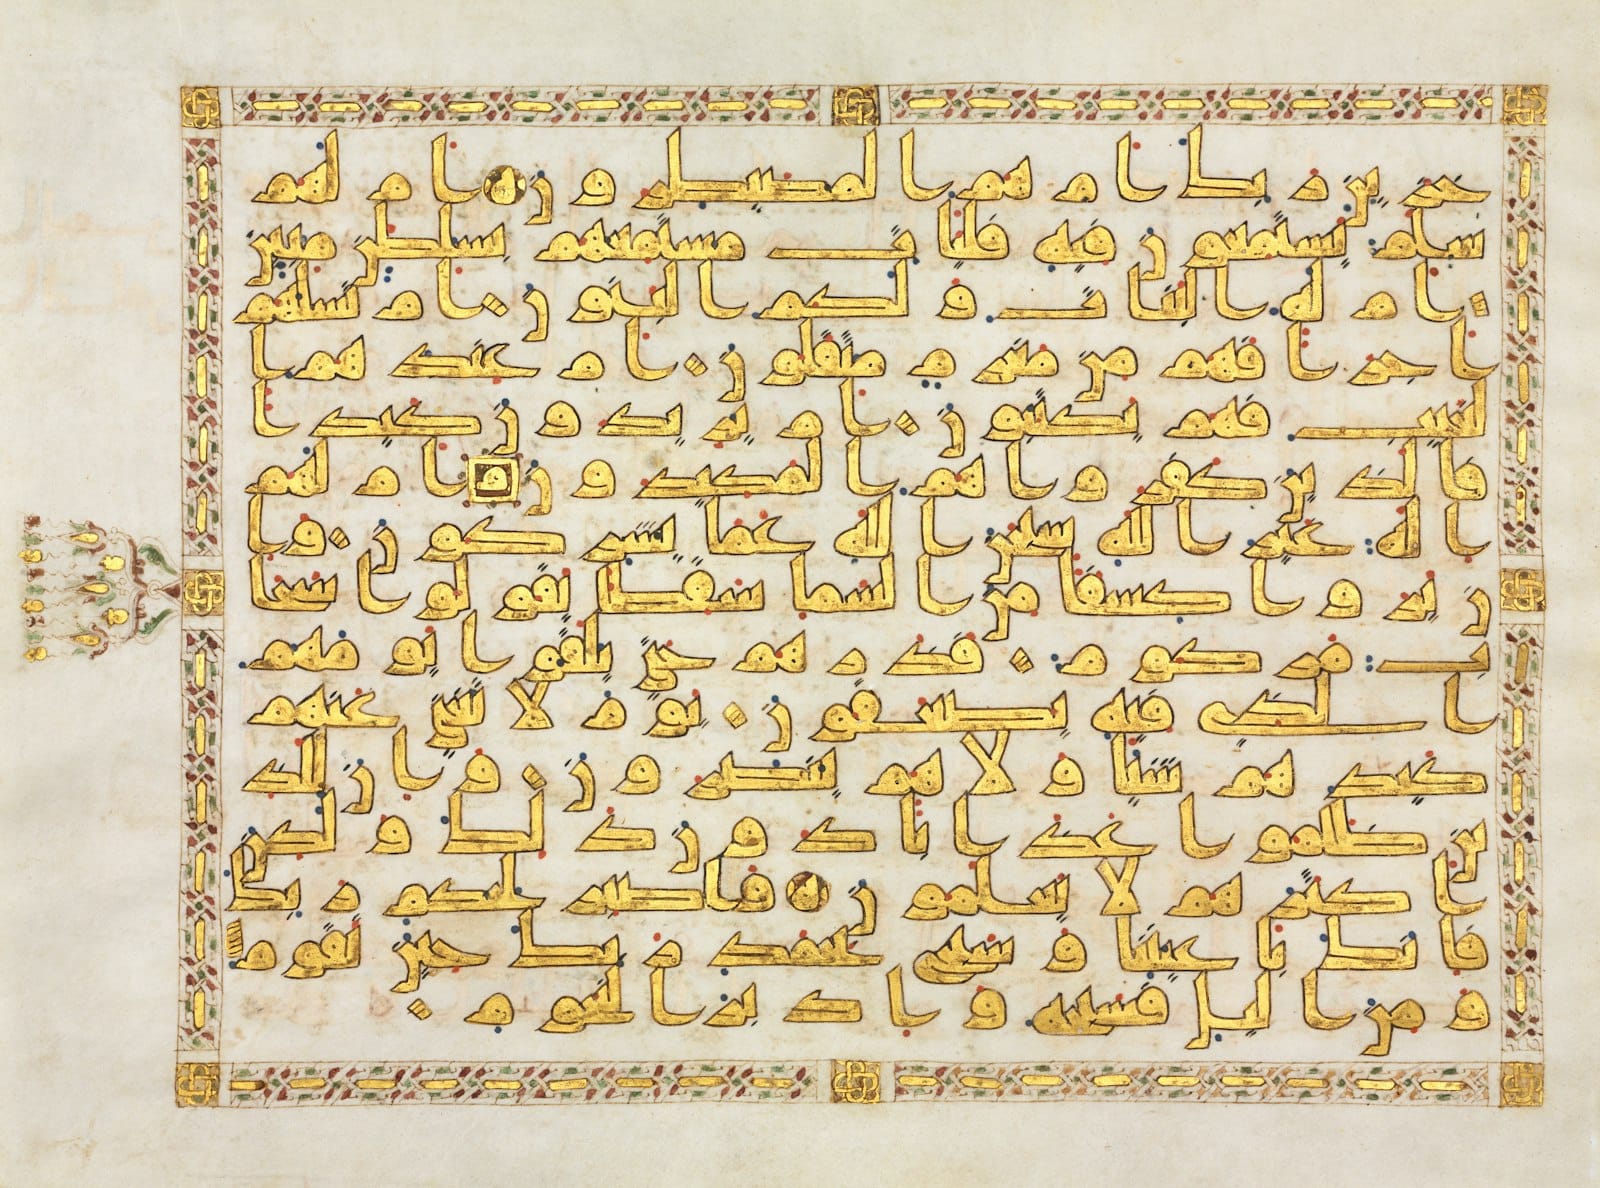 خزين ربك ام هم المصيطرون ام لهم
سلم يستمعون فيه فليات مستمعهم بسلطن مبين
ام له البنات ولكم البنون ام تسلهم
اجرا فهم من مغرم مثقلون ام عندهم ا
لغيب فهم يكتبون ام يريدون كيدا
فالذين كفروا هم المكيدون ام لهم
اله غير الله سبحن الله عما يشركون وا
ن يروا كسفا من السما سقطا يقولوا سحا
ب مركوم فذرهم حتى يلقوا يومهم
الذى فيه يصعقون يوم لا يغنى عنهم
كيدهم شيا ولا هم ينصرون وان للذ
ين ظلموا عذابا دون ذلك ولكن
اكثرهم لا يعلمون واصبر لحكم ربك
فانك باعيننا وسبح بحمد ربك حين تقوم
ومن اليل فسبحه وادبر النجوم